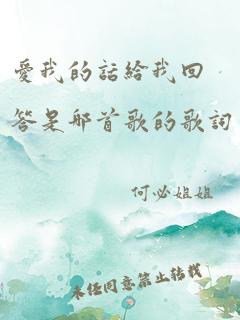 愛我的話給我回
答是那首歌的歌詞
何必姐姐
未經同意禁止轉載